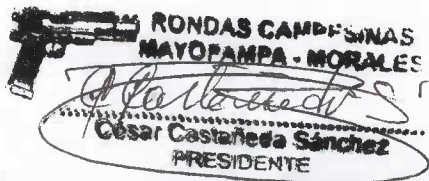 RONDAS CAMPESINAS
MAYOPAMPA - MORALES
César Castañeda Sánchez
PRESIDENTE